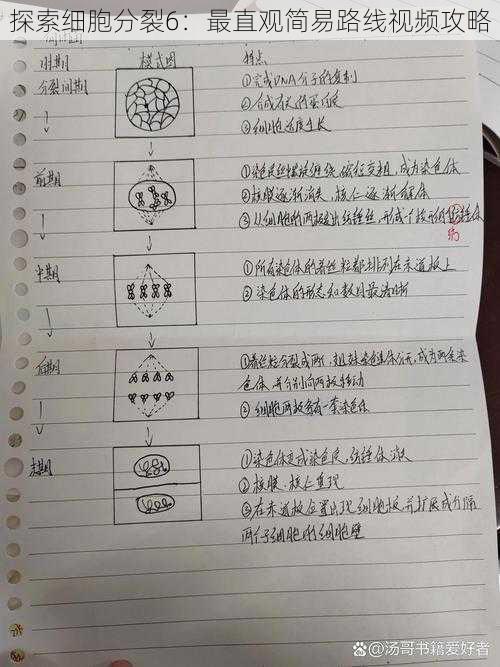 探索细胞分裂6：最直观简易路线视频攻略
时期 模式图 特点
分裂间期 ①完成DNA分子的复制
②合成有关的蛋白质
③细胞适度生长
前期 ①染色质丝螺旋缠绕，缩短变粗，成为染色体
②核膜逐渐消失，核仁逐渐解体
③从细胞的两极发出纺锤丝，形成了梭形的纺锤体
纺
中期 ①所有染色体的着丝粒都排列在赤道板上
②染色体的形态和数目最清晰
后期 ①着丝粒分裂成两个，姐妹染色单体分开，成为两条染
色体，并分别向两极移动
②细胞两极各有一套染色体
末期 ①染色体变成染色质，纺锤体消失
②核膜、核仁重现
③在赤道板位置出现细胞板，并扩展成分隔
两个子细胞的细胞壁
知乎 @汤哥书籍爱好者